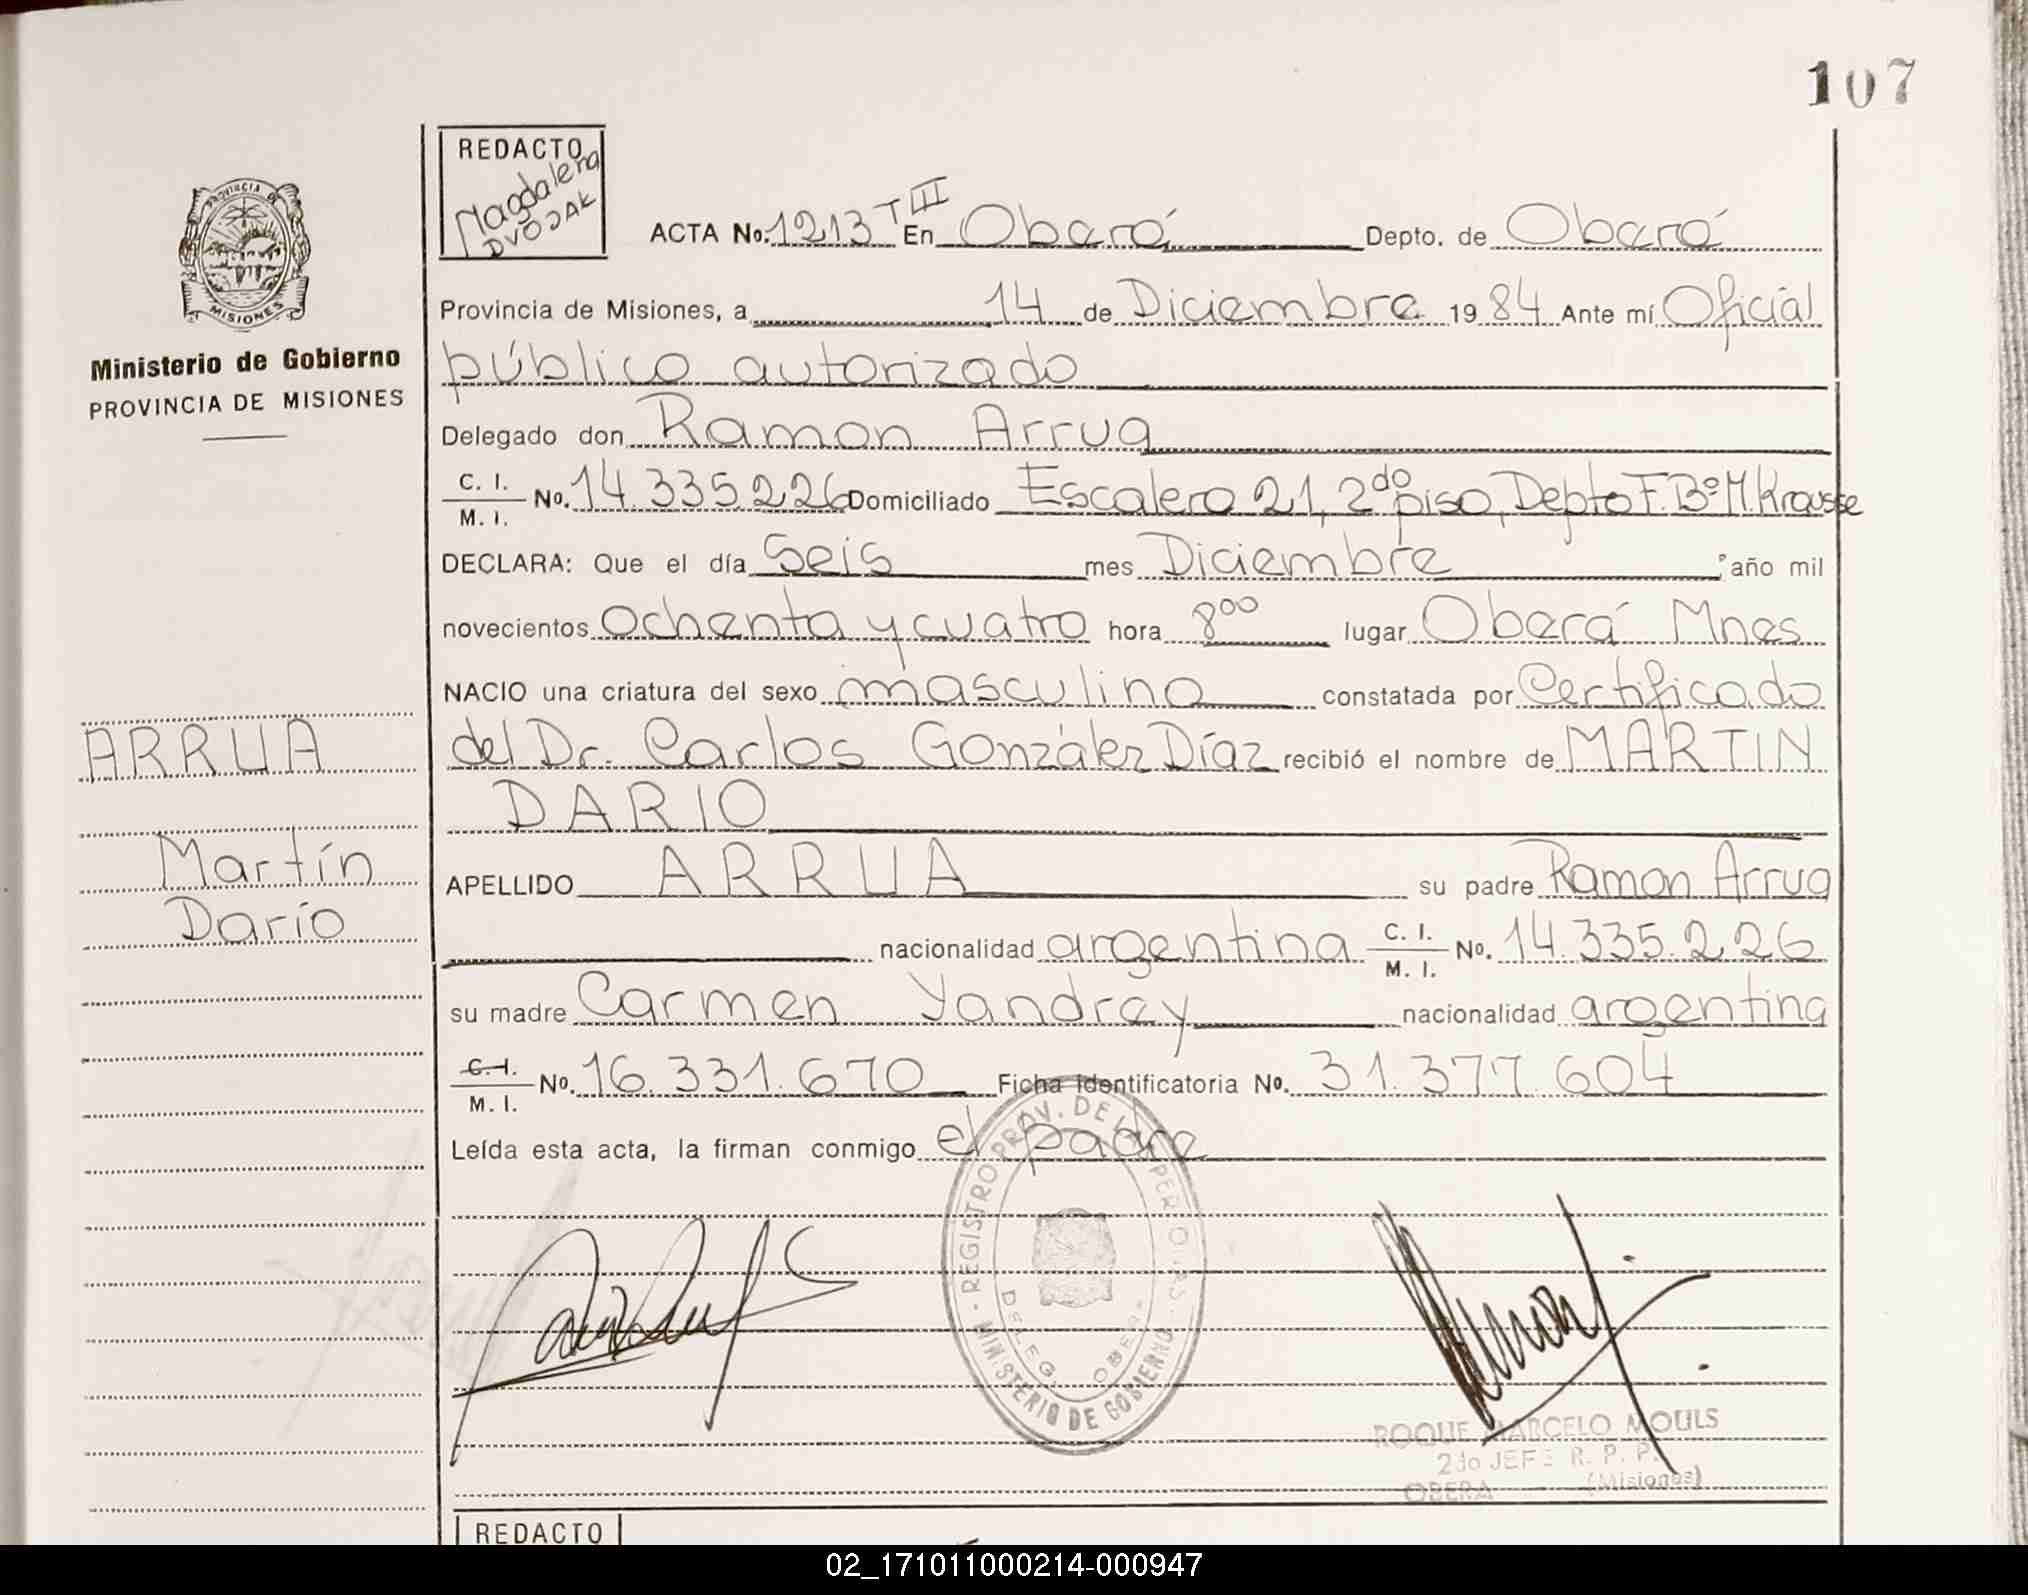 107
REDACTO
Magdalena
DVOJAK
ACTA No. 1213 T III En Oberá Depto. de Oberá
PROVINCIA DE
MISIONES
Provincia de Misiones, a 14 de Diciembre 19 84 Ante mí Oficial
Ministerio de Gobierno
PROVINCIA DE MISIONES
público autorizado
Delegado don Ramon Arrua
C. I.
M. I. No. 14.335.226 Domiciliado Escalera 21, 2do piso, Depto F. Bº M. Krausse
DECLARA: Que el día Seis mes Diciembre año mil
novecientos ochenta y cuatro hora 800 lugar Oberá Mnes
NACIO una criatura del sexo masculino constatada por Certificado
ARRUA
del Dr. Carlos González Díaz recibió el nombre de MARTIN
DARIO
Martín
Darío
APELLIDO ARRUA su padre Ramon Arrua
nacionalidad argentina C. I.
M. I. No. 14.335.226
su madre Carmen Yandrey nacionalidad argentina
C. I.
M. I. No. 16.331.670 Ficha Identificatoria No. 31.377.604
Leída esta acta, la firman conmigo el padre
REGISTRO PROV. DE LAS PERSONAS
MINISTERIO DE GOBIERNO
DELEG. OBERA
ROQUE MARCELO MOULS
2do JEFE R. P. P.
OBERA (Misiones)
REDACTO
02_171011000214-000947